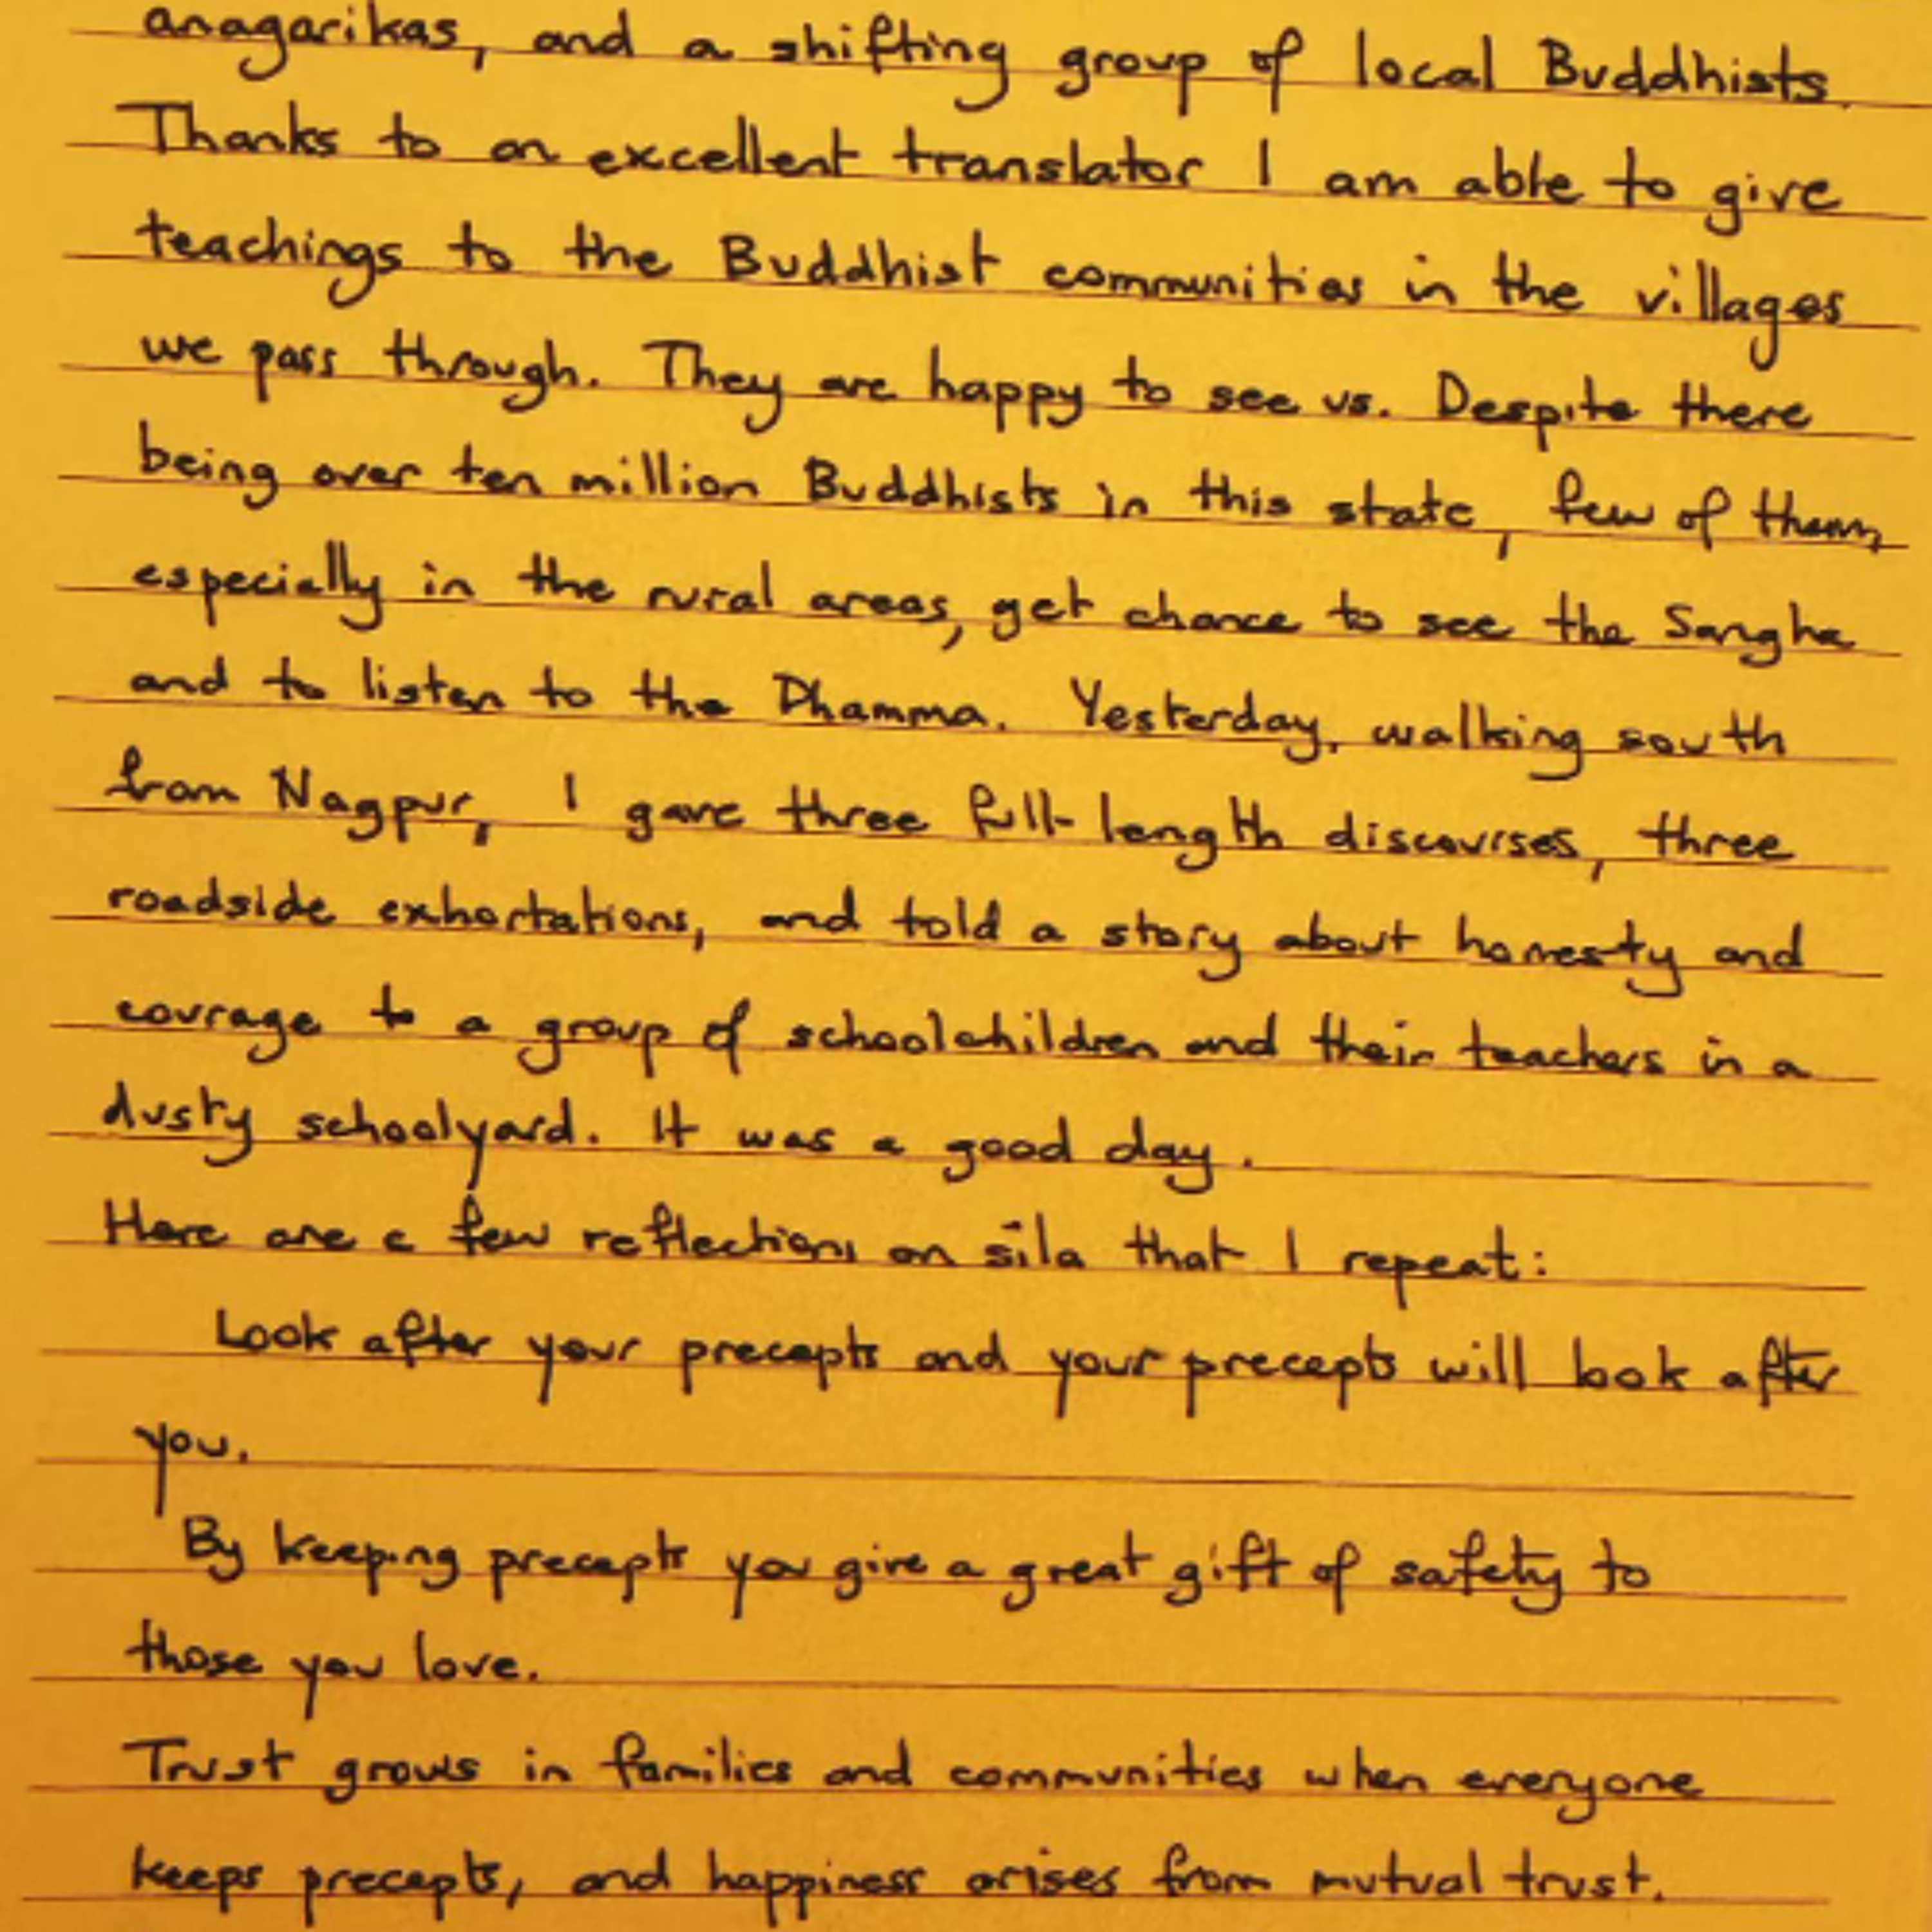 anagarikas, and a shifting group of local Buddhists.
Thanks to an excellent translator I am able to give
teachings to the Buddhist communities in the villages
we pass through. They are happy to see us. Despite there
being over ten million Buddhists in this state, few of them,
especially in the rural areas, get chance to see the Sangha
and to listen to the Dhamma. Yesterday, walking south
from Nagpur, I gave three full-length discourses, three
roadside exhortations, and told a story about honesty and
courage to a group of schoolchildren and their teachers in a
dusty schoolyard. It was a good day.
Here are a few reflections on sīla that I repeat:
Look after your precepts and your precepts will look after
you.
By keeping precepts you give a great gift of safety to
those you love.
Trust grows in families and communities when everyone
keeps precepts, and happiness arises from mutual trust.